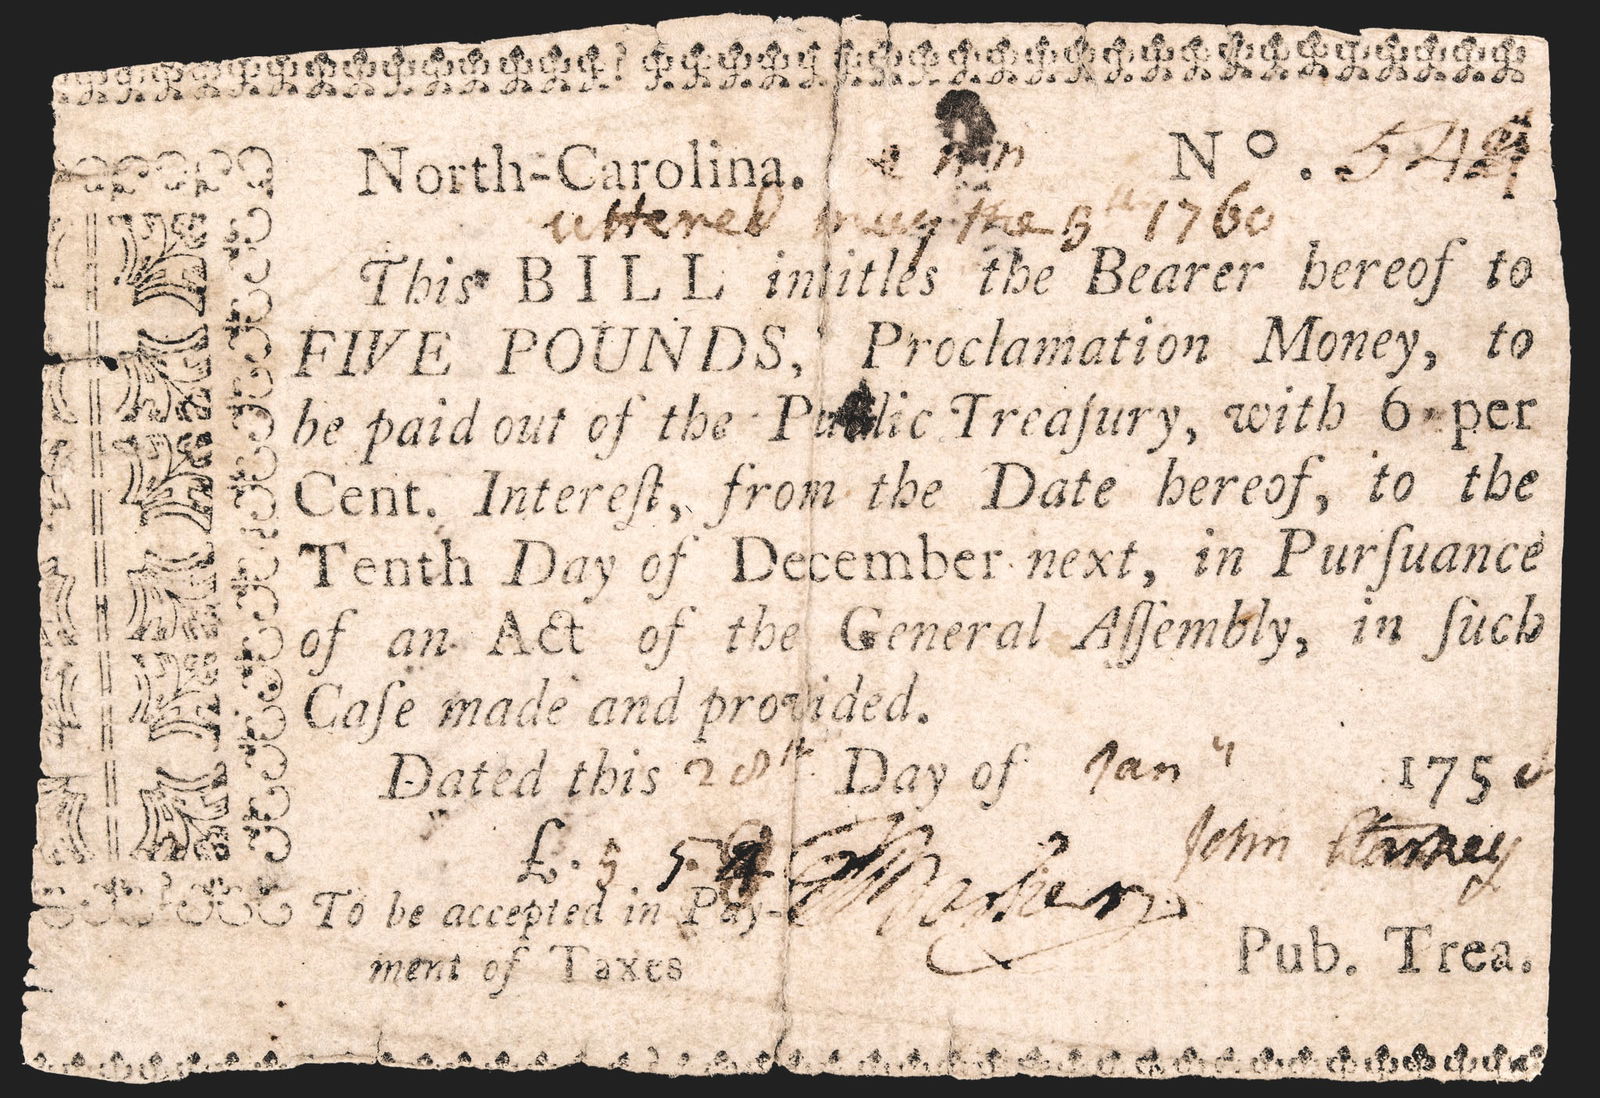 North-Carolina. No. 542
uttered may the 5th 1760
This BILL intitles the Bearer hereof to
FIVE POUNDS, Proclamation Money, to
be paid out of the Public Treaſury, with 6 per
Cent. Intereſt, from the Date hereof, to the
Tenth Day of December next, in Purſuance
of an Act of the General Aſſembly, in ſuch
Caſe made and provided.
Dated this 28th Day of Jany 175
£. 5 5. John Starkey
To be accepted in Pay-
ment of Taxes Pub. Trea.